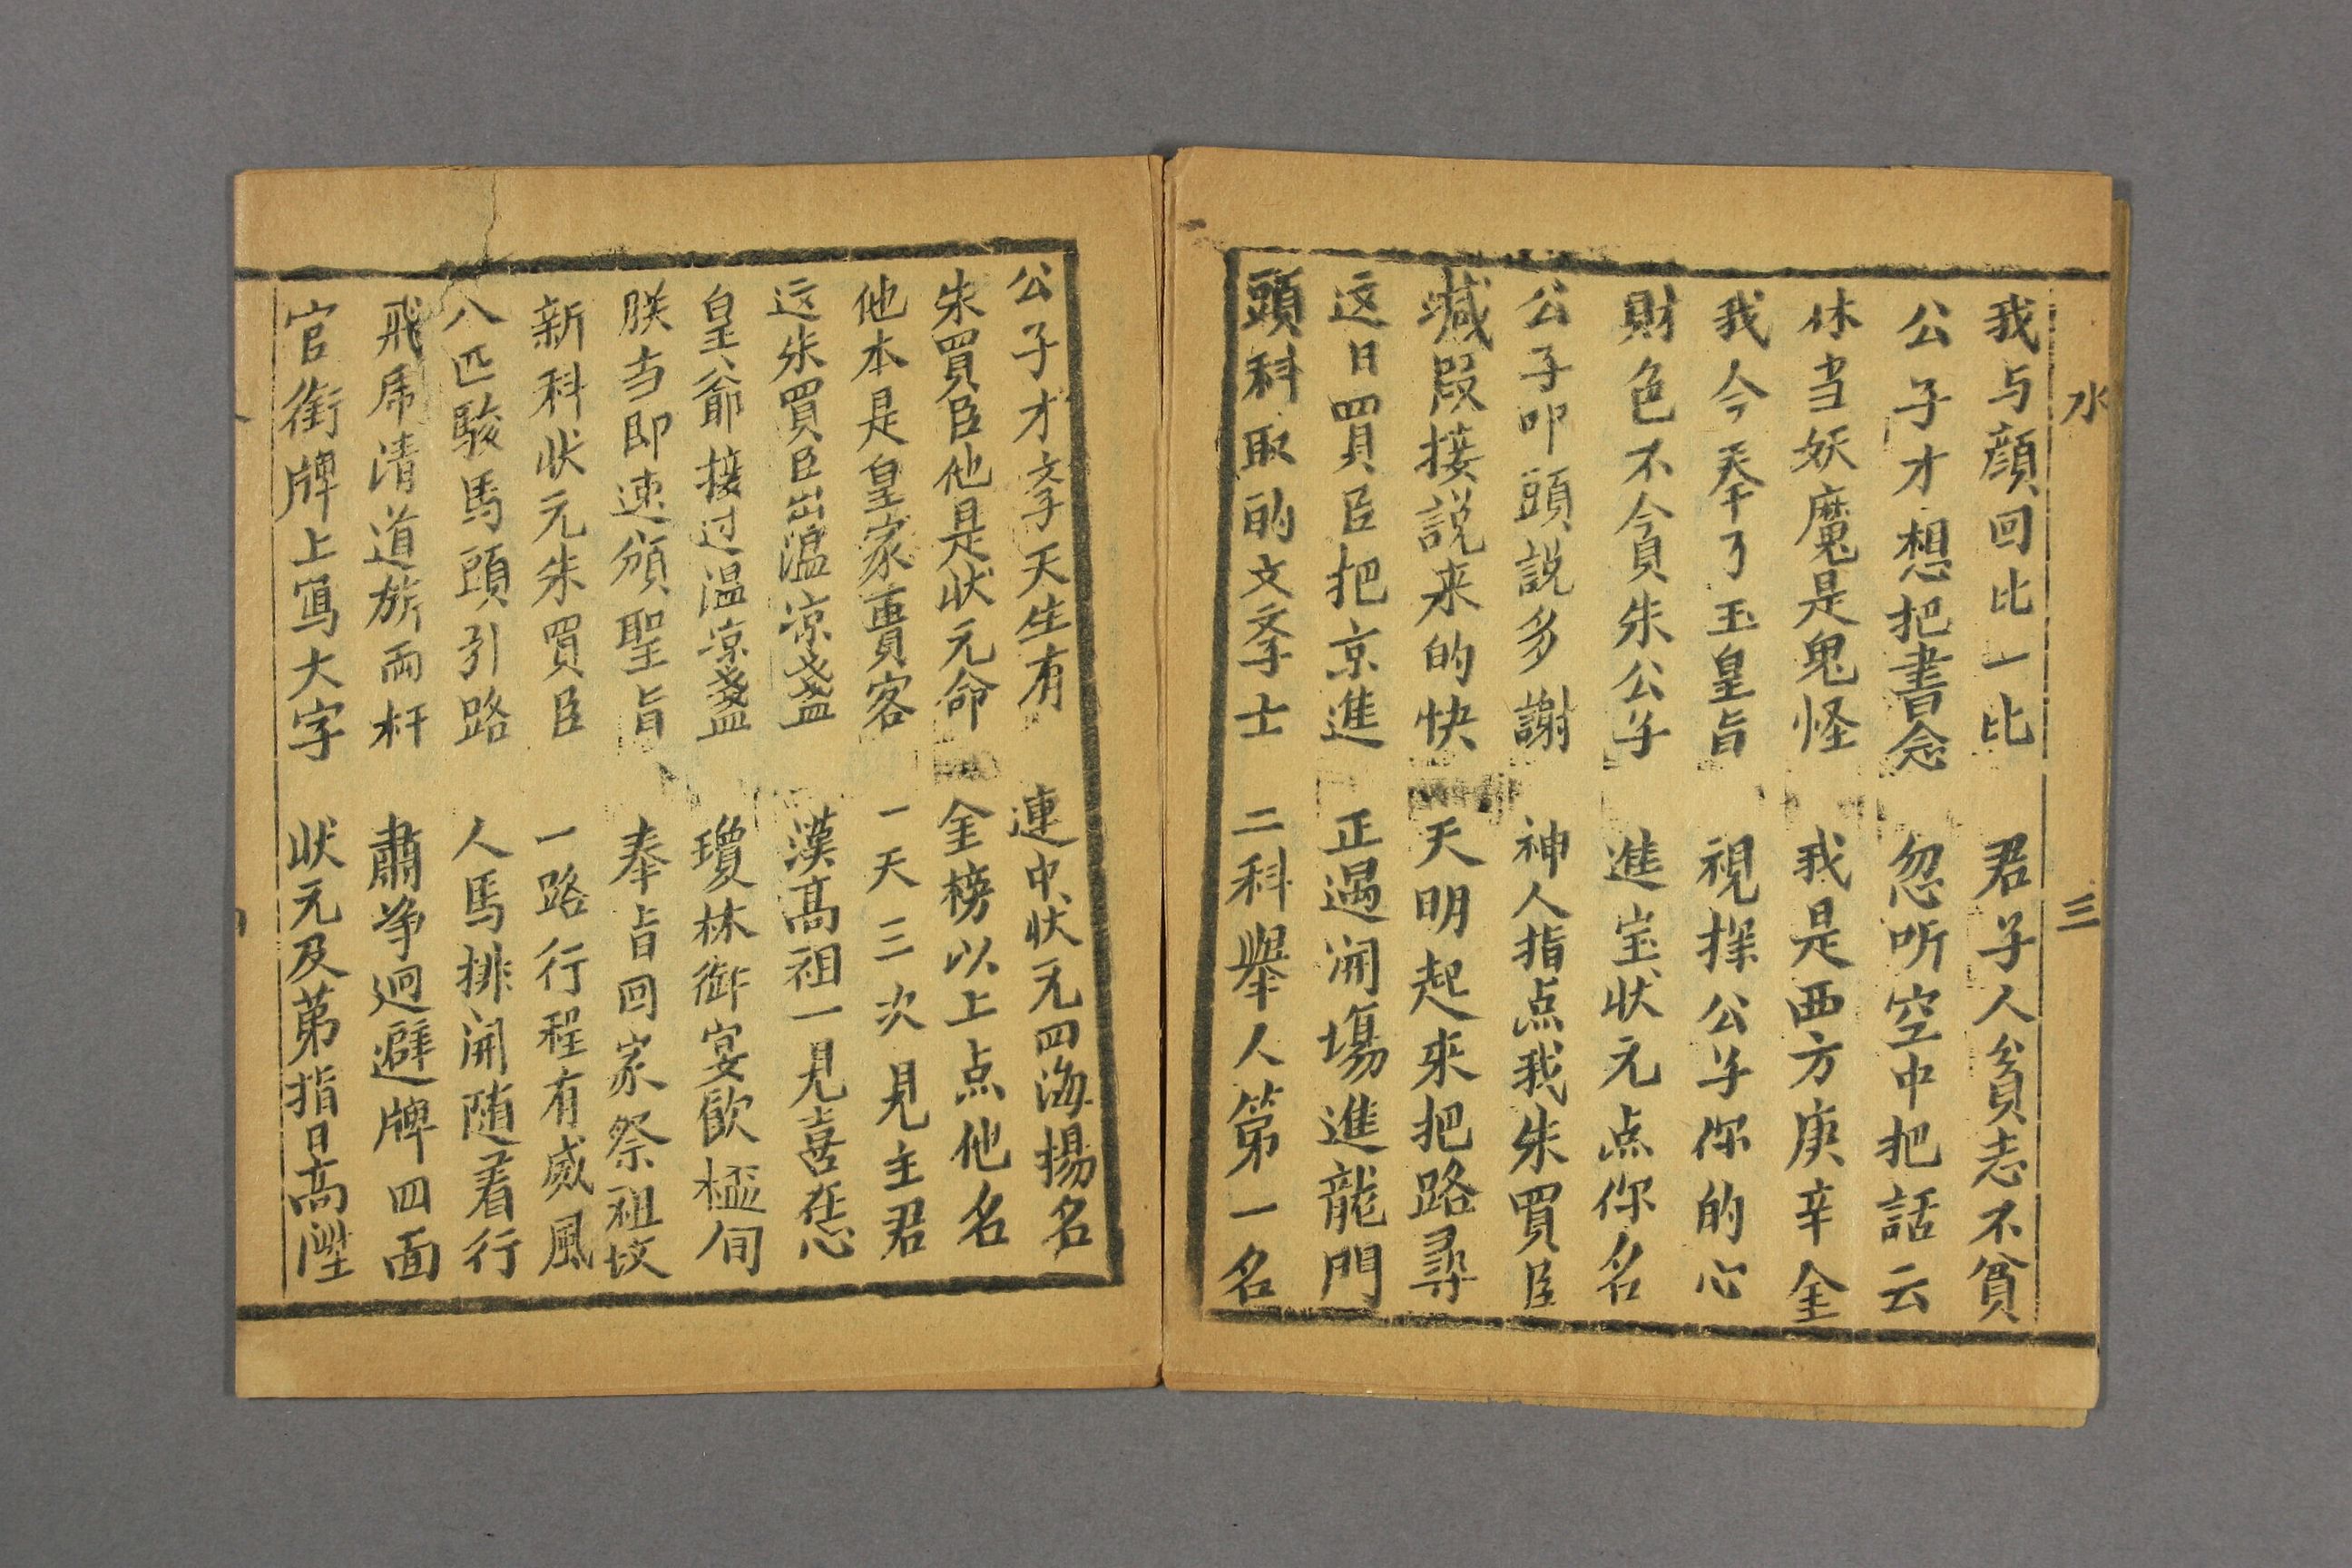 水 三
我与顔回比一比 君子人貧志不貧
公子才想把書念 忽听空中把話云
休当妖魔是鬼怪 我是西方庚辛金
我今奉了玉皇旨 視探公子你的心
財色不貪朱公子 進宝状元点你名
公子叩頭説多謝 神人指点我朱買臣
喊段接説来的快 天明起來把路尋
这日買臣把京進 正遇開場進龍門
頭科取的文孝士 二科舉人第一名
公子才孝天生有 連中状元四海揚名
朱買臣他是状元命 金榜以上点他名
他本是皇家貴客 一天三次見主君
这朱買臣出温凉盞 漢高祖一見喜
皇爺接过温凉盞 瓊林御宴飲
朕当即速頒聖旨 奉旨回家祭祖坟
新科状元朱買臣 一路行程有威風
八匹駿馬頭引路 人馬排開随着行
飛虎清道旂両杆 肅争迴避牌四面
官銜牌上寫大字 状元及第指日高陞